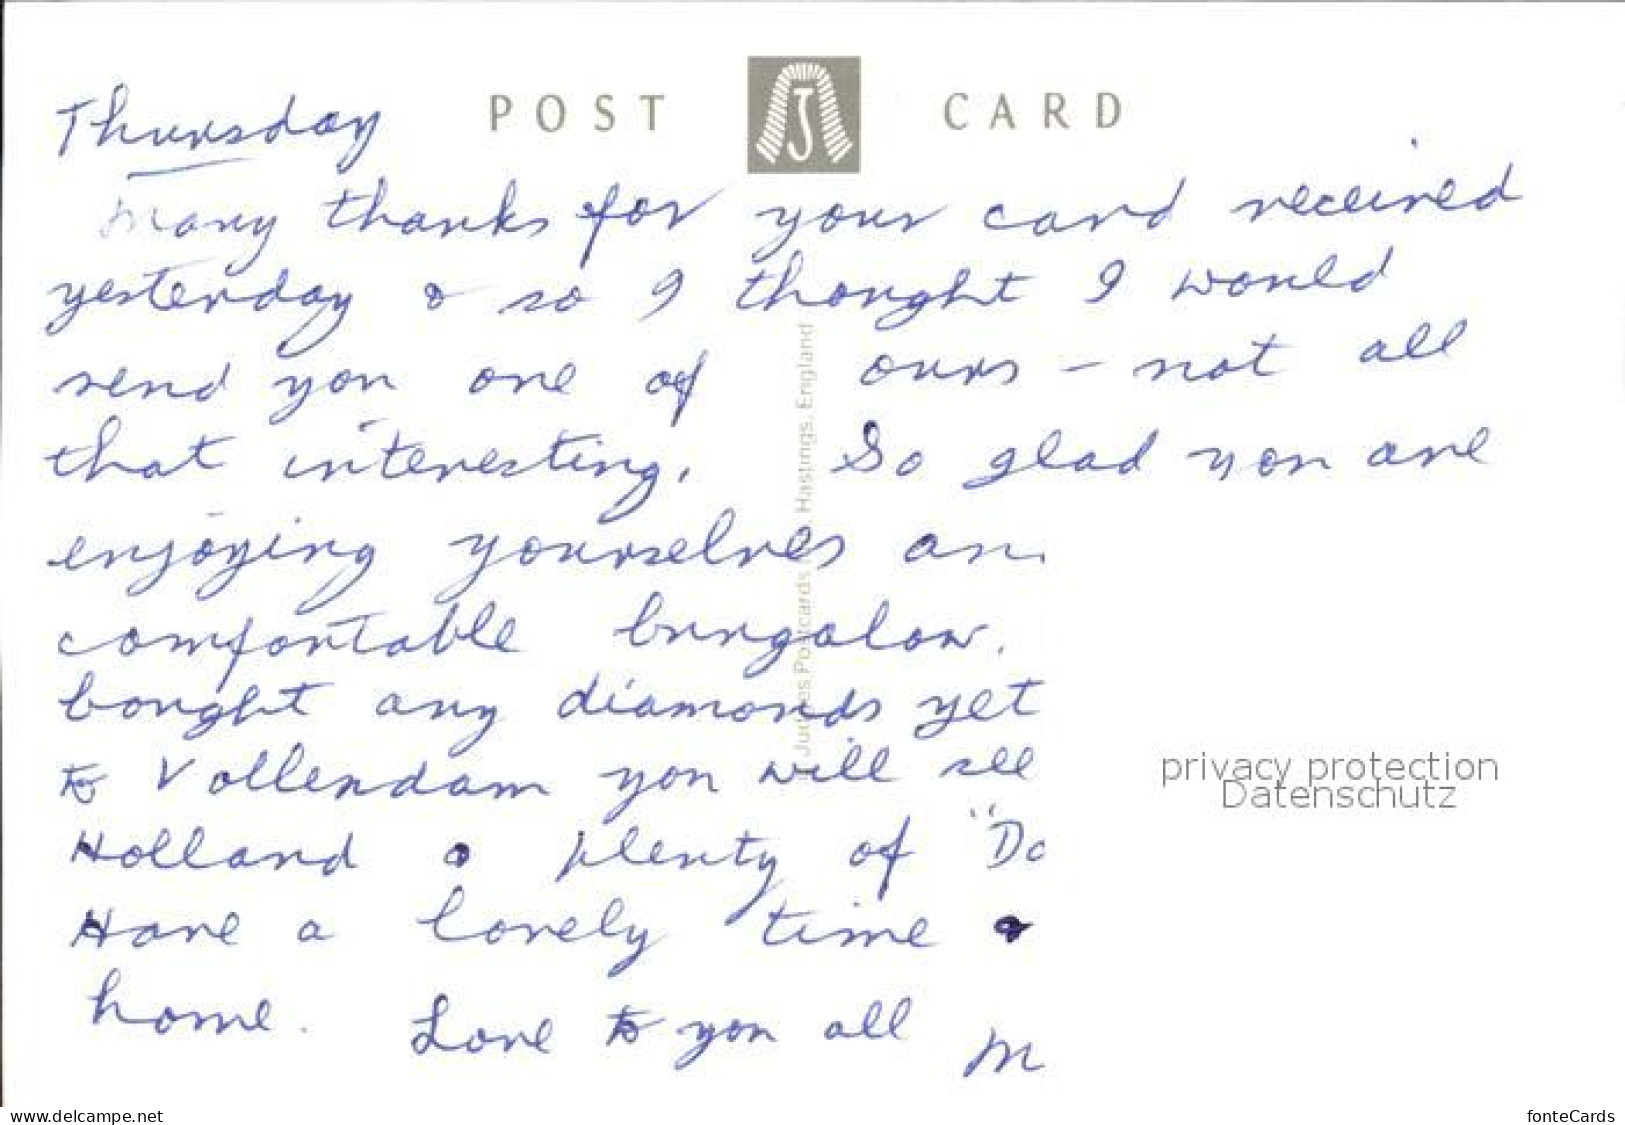 POST CARD
Thursday
Many thanks for your card received
yesterday & so I thought I would
send you one of ours - not all
that interesting. So glad you are
enjoying yourselves an
comfortable bungalow.
bought any diamonds yet
to Vollendam you will see
Holland & plenty of "Do
Have a lovely time &
home. Love to you all M
Judges Postcards Hastings, England
privacy protection
Datenschutz
www.delcampe.net
fonteCards